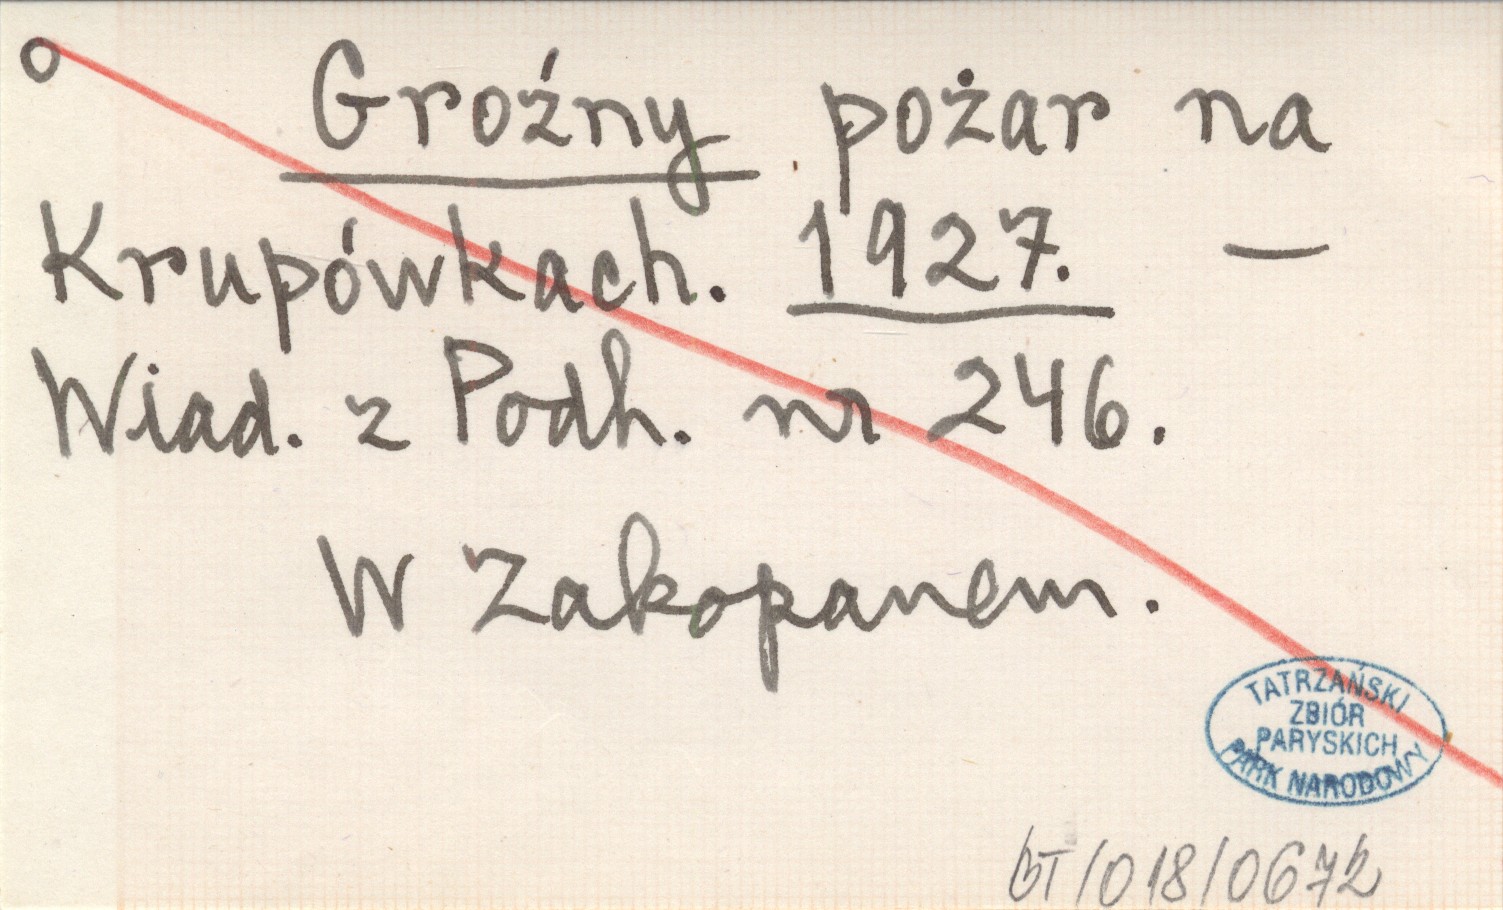 o Groźny pożar na
Krupówkach. 1927. —
Wiad. z Podh. nr 246.
W Zakopanem.
TATRZAŃSKI
ZBIÓR
PARYSKICH
PARK NARODOWY
BT/018/0672